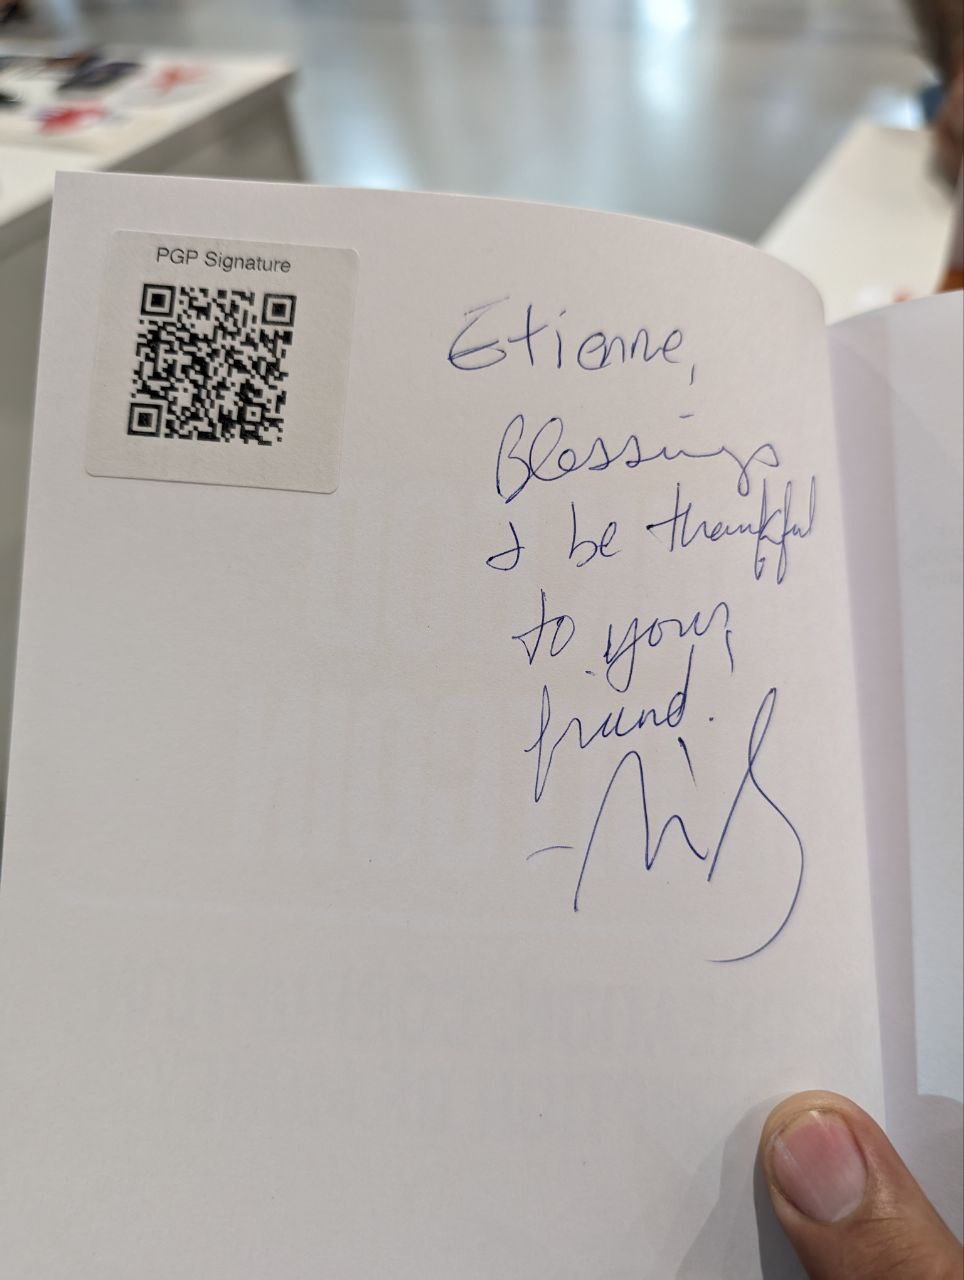 PGP Signature
Etienne,
Blessings
& be thankful
to your
friend.